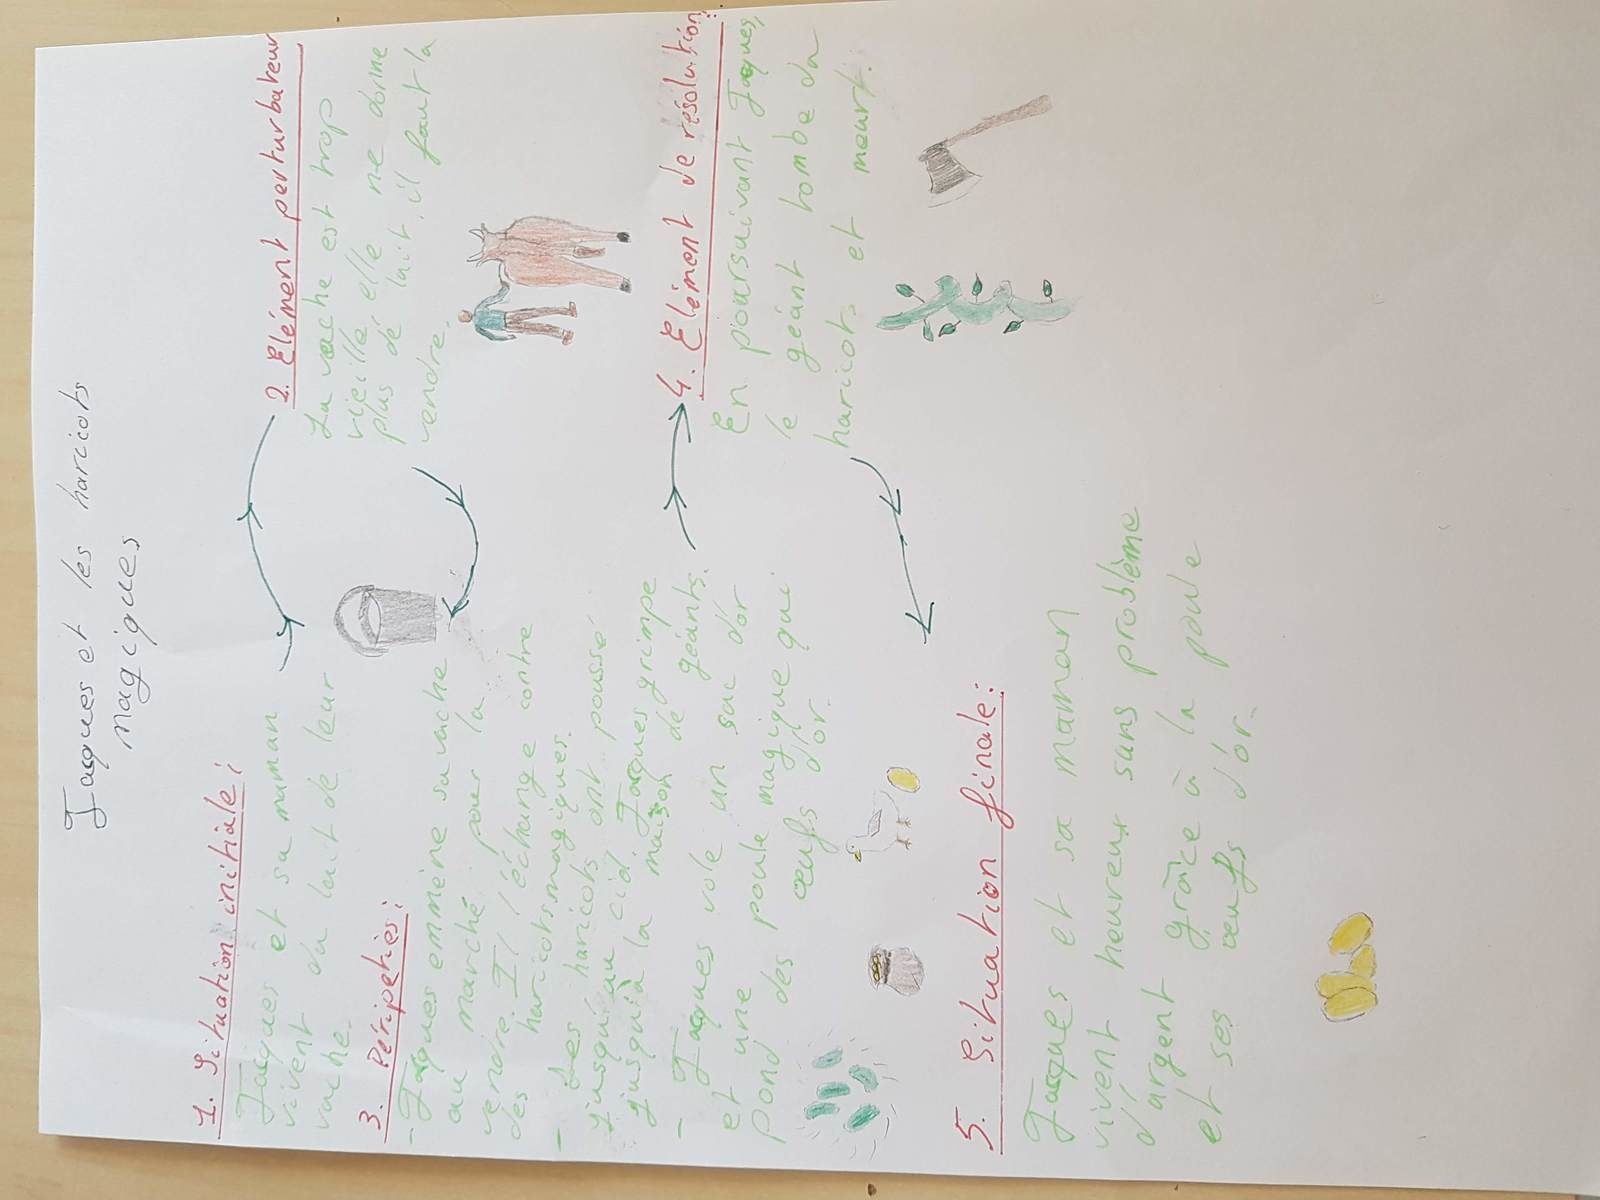 Jacques et les haricots
magiques
1. Situation initiale :
Jacques et sa maman
vivent du lait de leur
vache.
2. Elément perturbateur
La vache est trop
vieille, elle ne donne
plus de lait. il faut la
vendre.
3. Péripeties :
- Jacques emmène sa vache
au marché pour la
vendre. Il l'échange contre
des haricots magiques.
- Les haricots ont poussé
jusqu'au ciel. Jacques grimpe
jusqu'à la maison de géants.
- Jacques vole un sac d'or
et une poule magique qui
pond des œufs d'or.
4. Elément de résolution:
En poursuivant Jacques,
le géant tombe du
haricots et meurt.
5. Situation finale :
Jacques et sa maman
vivent heureux sans problème
d'argent grâce à la poule
et ses œufs d'or.